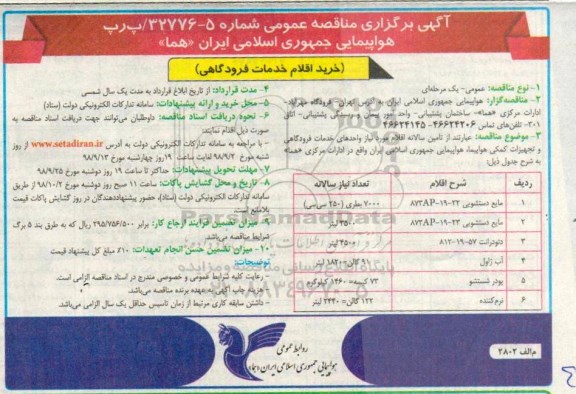 آگهی برگزاری مناقصه عمومی شماره ۵-۳۲۷۷۶/ب‌ر‌پ
هواپیمایی جمهوری اسلامی ایران «هما»
(خرید اقلام خدمات فرودگاهی)
۱- نوع مناقصه: عمومی- یک مرحله‌ای
۲- مناقصه‌گزار: هواپیمایی جمهوری اسلامی ایران به آدرس تهران- فرودگاه مهرآباد-
ادارات مرکزی «هما»- ساختمان پشتیبانی- واحد پشتیبانی- اتاق
۲۰۱- تلفن‌های تماس ۴۶۶۲۴۲۰۶- ۴۶۶۲۴۱۴۵
۳- موضوع مناقصه: عبارتند از تامین سالانه اقلام مورد نیاز واحدهای خدمات فرودگاهی
و تجهیزات کمکی هواپیما، هواپیمایی جمهوری اسلامی ایران واقع در ادارات مرکزی «هما»
به شرح جدول ذیل:
ردیف شرح اقلام تعداد نیاز سالانه
۱ مایع دستشویی ۲۲-۱۹-۸۷۳AP ۷۰۰۰ بطری (۲۵۰ سی‌سی)
۲ مایع دستشویی ۲۳-۱۹-۸۷۳AP لیتر
۳ دئودرانت ۵۷-۱۹-۸۱۲ ۴۵۰۰ لیتر
۴ آب ژاول ۹۱ گالن= ۱۸۲۰ لیتر
۵ پودر شستشو ۷۳ کیسه= ۱۴۶۰ کیلوگرم
۶ نرم‌کننده ۱۲۲ گالن= ۲۴۴۰ لیتر
۴- مدت قرارداد: از تاریخ ابلاغ قرارداد به مدت یک سال شمسی
۵- محل خرید و ارائه پیشنهادات: سامانه تدارکات الکترونیکی دولت (ستاد)
۶- نحوه دریافت اسناد مناقصه: داوطلبان می‌توانند جهت دریافت اسناد مناقصه به
صورت ذیل اقدام نمایند:
- با مراجعه به سامانه تدارکات الکترونیکی دولت به آدرس www.setadiran.ir از روز
شنبه مورخ ۹۸/۹/۲ لغایت ساعت ۱۹ روز چهارشنبه مورخ ۹۸/۹/۱۳
۷- مهلت تحویل پیشنهادات: حداکثر تا ساعت ۱۹ روز دوشنبه مورخ ۹۸/۹/۲۵
۸- تاریخ و محل گشایش پاکات: ساعت ۱۱ صبح روز دوشنبه مورخ ۹۸/۱۰/۲ از طریق
سامانه تدارکات الکترونیکی دولت (ستاد)، حضور پیشنهاددهندگان در روز گشایش پاکات قیمت
بلامانع است.
۹- میزان تضمین فرایند ارجاع کار: برابر ۲۹۵/۷۵۶/۵۰۰ ریال که به طرق بند ۵ برگ
شرایط مناقصه می‌باشد.
۱۰- میزان تضمین حسن انجام تعهدات: ۱۰٪ مبلغ کل پیشنهاد قیمت
توضیحات:
- رعایت کلیه شرایط عمومی و خصوصی مندرج در اسناد مناقصه الزامی است.
- هزینه چاپ آگهی به عهده برنده مناقصه می‌باشد.
- داشتن سابقه کاری مرتبط از زمان تاسیس حداقل یک سال الزامی می‌باشد.
روابط عمومی
هواپیمایی جمهوری اسلامی ایران «هما»
م‌الف ۲۸۰۲